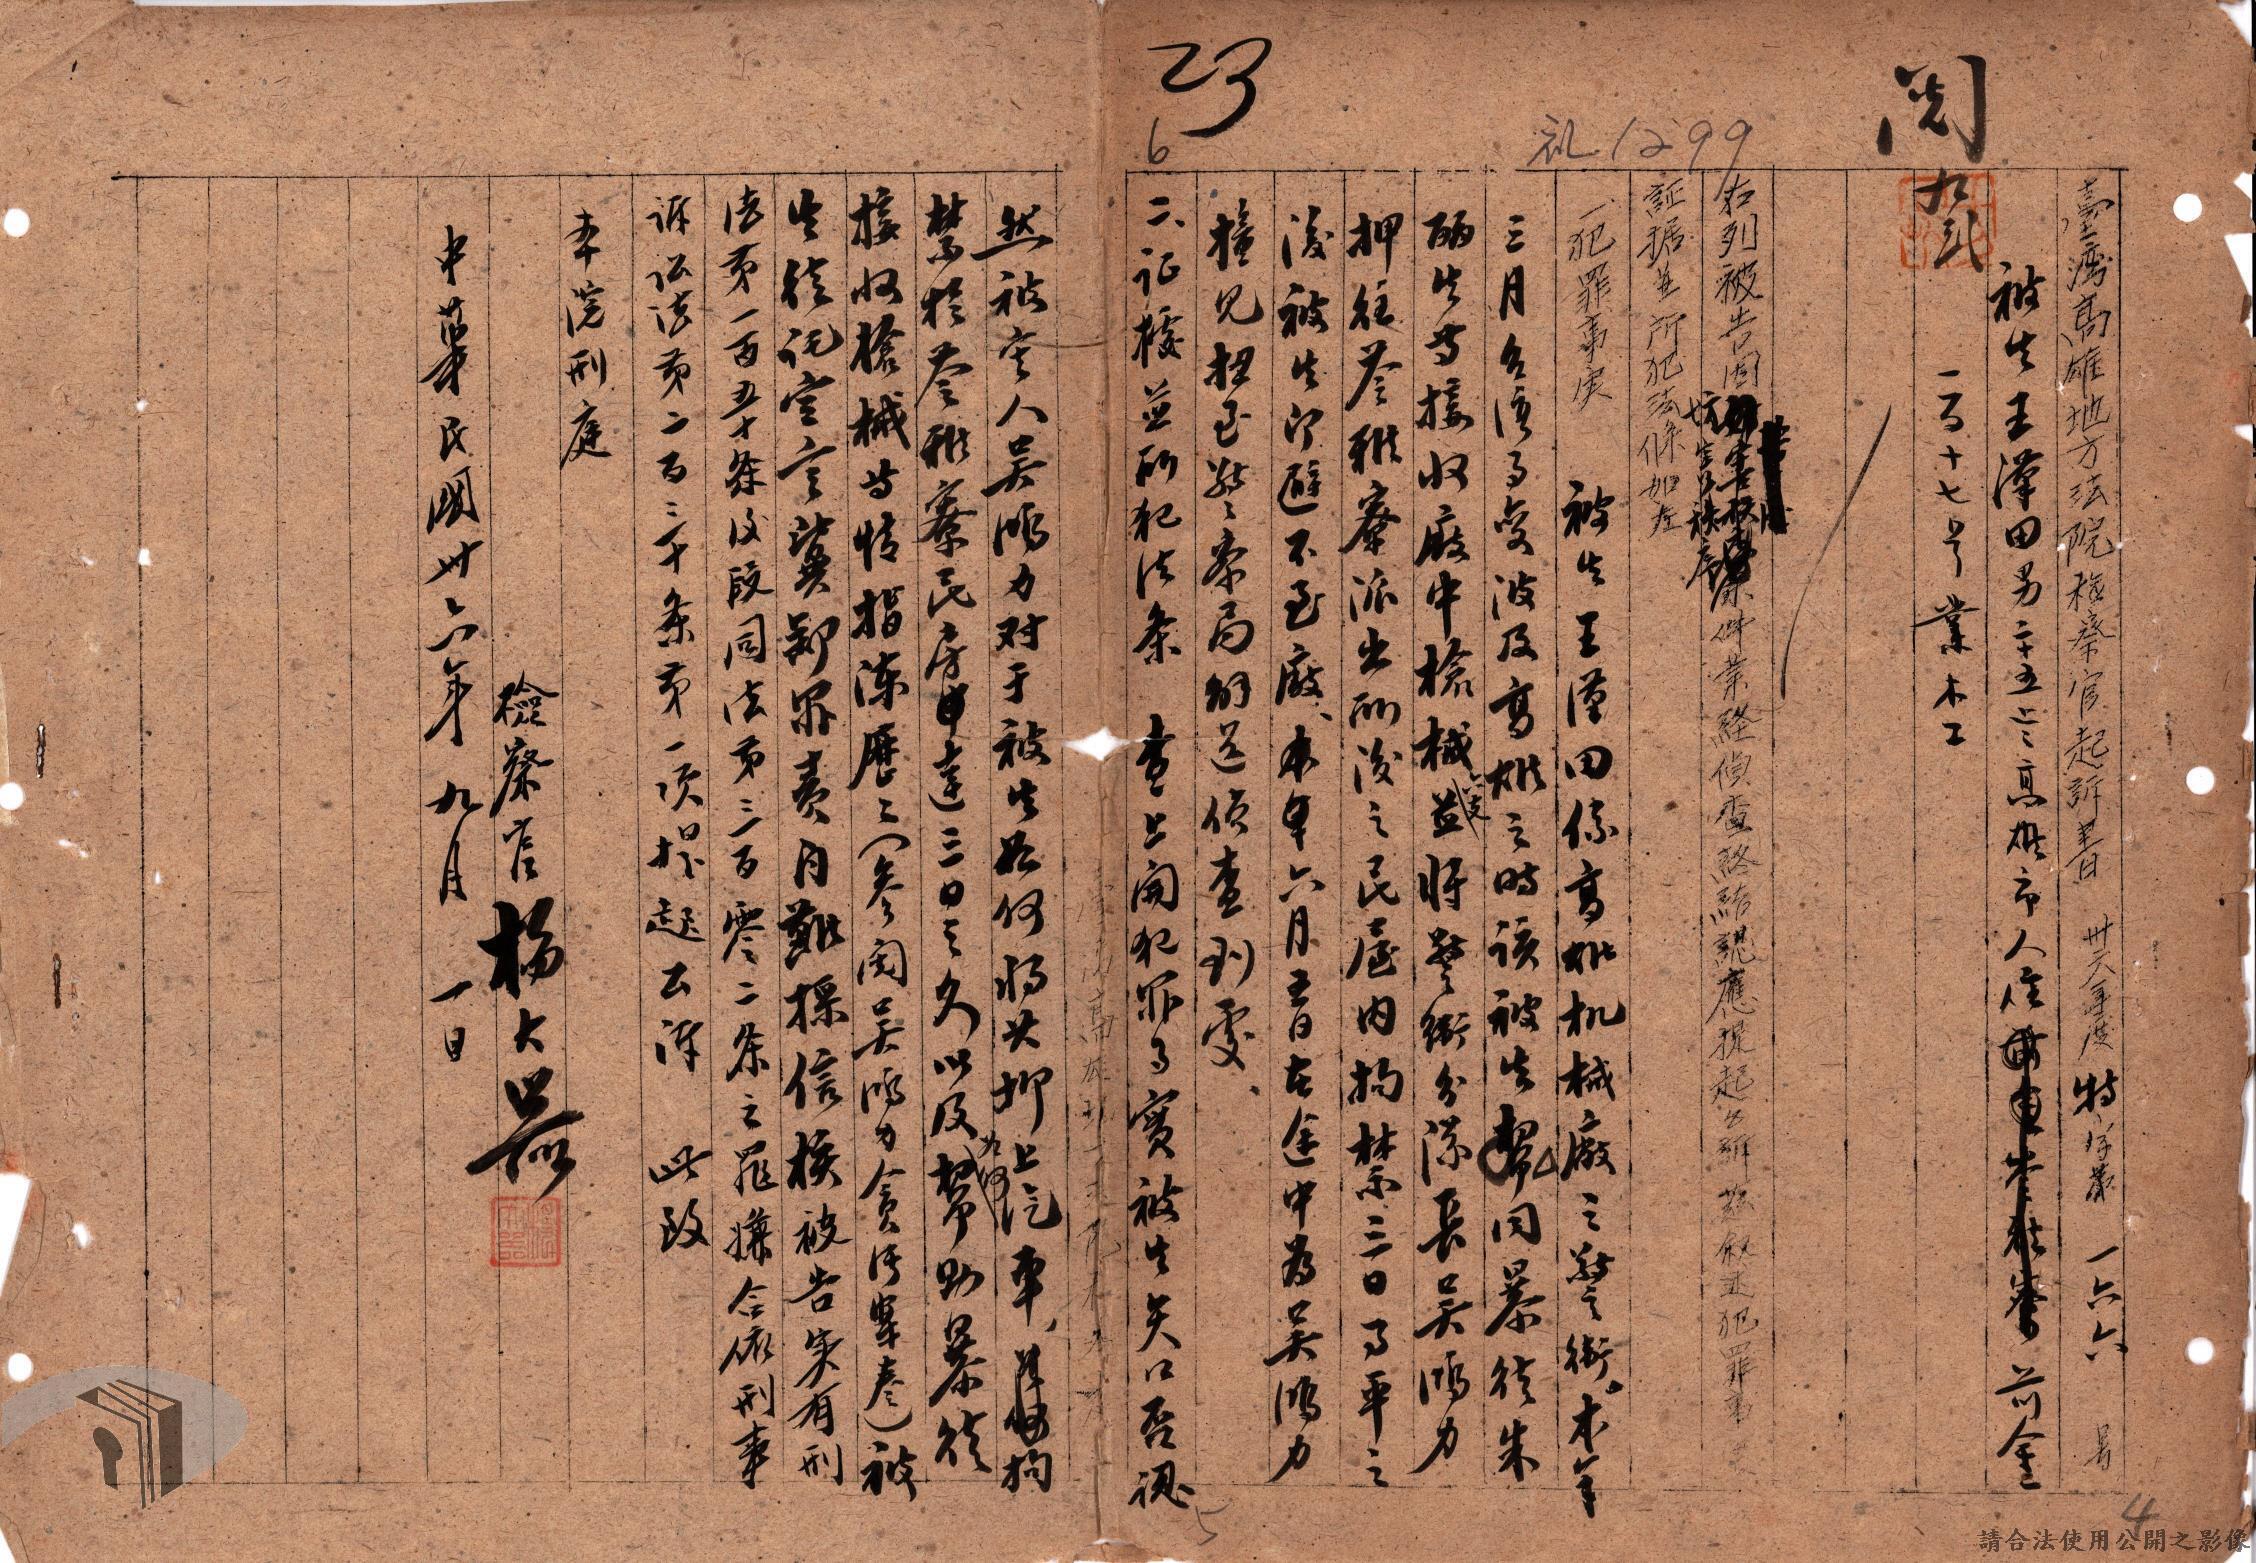 閱
九、弍
礼1299
6
臺灣高雄地方法院檢察官起訴書 卅六年度特字第一六六號
被告王漢田男二十五歲高雄市人住前金
一百十七号業木工
右列被告因妨害秩序案件業経偵查終結認應提起公訴茲叙述犯罪事実
証据並所犯法條如左
一、犯罪事実 被告王漢田係高雄机械廠之警衛、本年
三月台湾事变波及高雄之時該被告幫同暴徒朱
等接收廠中槍械並將警衛分隊長吳鴻力
押往苓雅寮派出所後之民屋內拘禁三日事平之
後被告即避不至廠、本年六月五日在途中為吳鴻力
撞見扭至警察局解送偵查到處、
二、证據並所犯法条 查上開犯罪事實被告矢口否認
然被害人吳鴻力对于被告如何將其押上汽車、拘
禁於苓雅寮民房中達三日之久以及如何幫助暴徒
接收槍械等情指陳歷歷(參閱吳鴻力貪污案卷)被
告徒託空言冀卸罪責自難採信核被告実有刑
法第一百五十条後段同法第三百零二条之罪嫌合依刑事
訴讼法第二百三十条第一項提起公訴 此致
本院刑庭
檢察官 楊大器
中華民國卅六年九月一日
5
4
請合法使用公開之影像